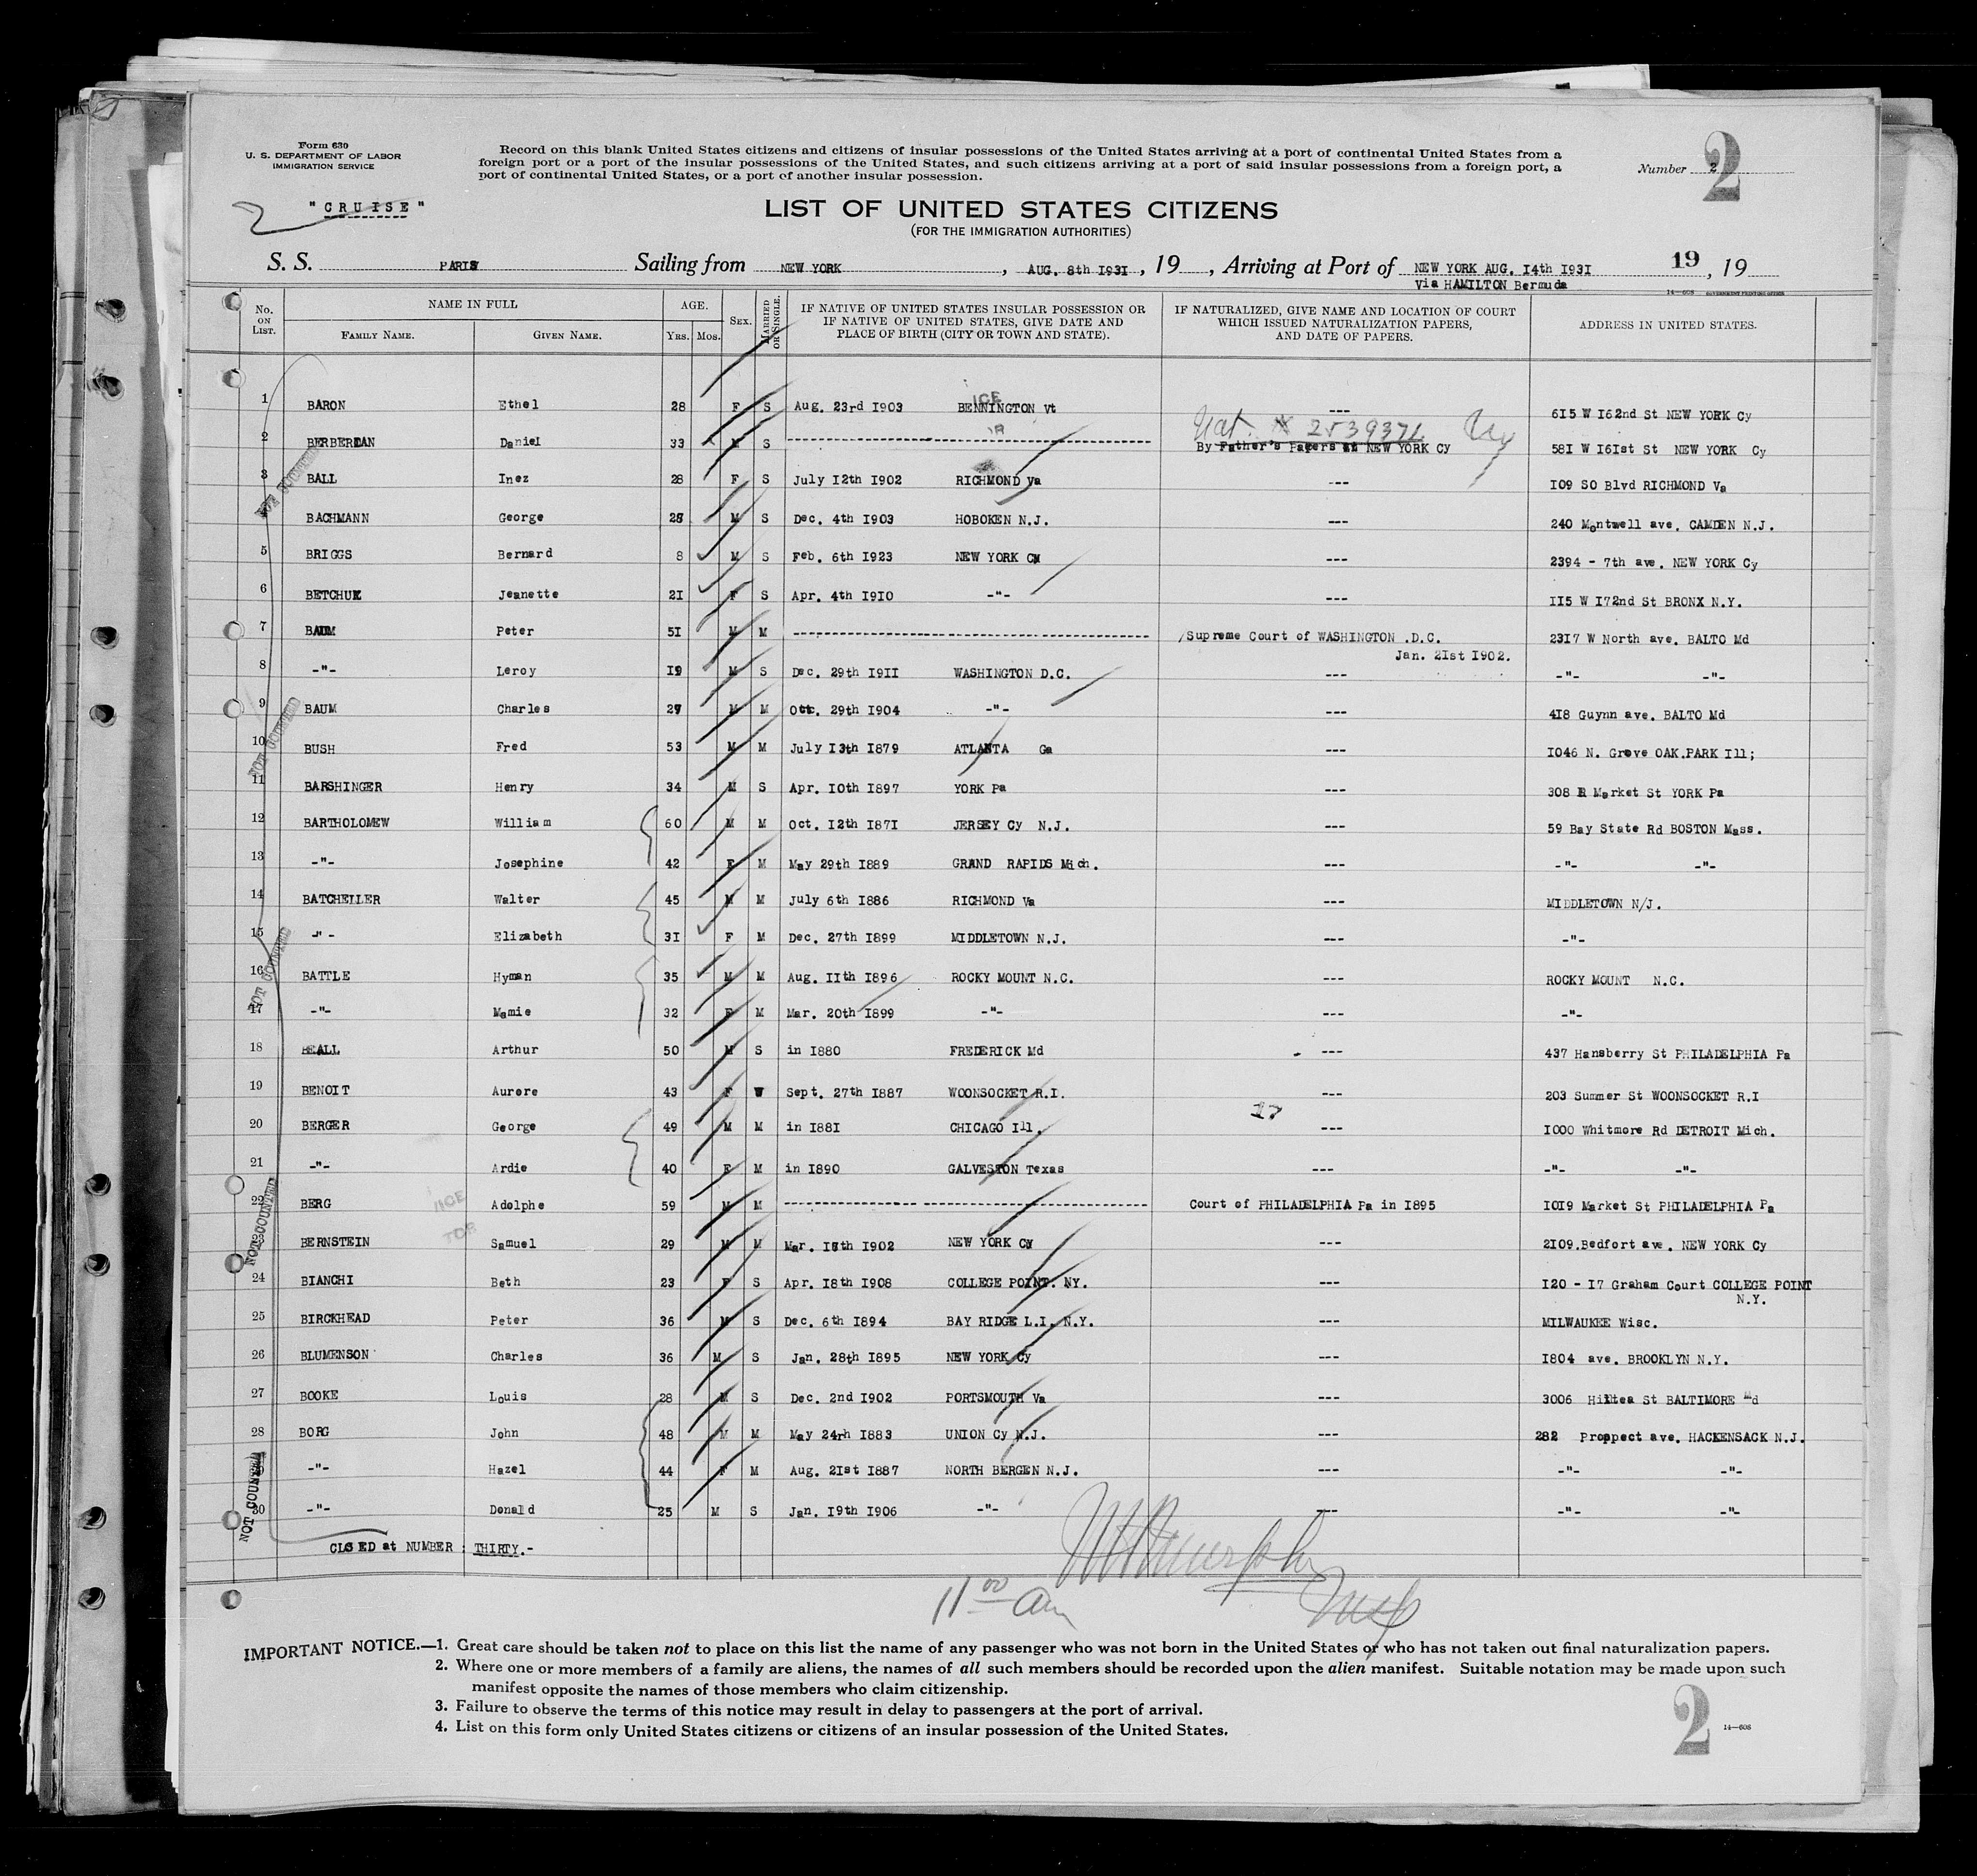 Form 630
U. S. DEPARTMENT OF LABOR
IMMIGRATION SERVICE
Record on this blank United States citizens and citizens of insular possessions of the United States arriving at a port of continental United States from a
foreign port or a port of the insular possessions of the United States, and such citizens arriving at a port of said insular possessions from a foreign port, a
port of continental United States, or a port of another insular possession.
Number 2
2
" CRUISE "
LIST OF UNITED STATES CITIZENS
(FOR THE IMMIGRATION AUTHORITIES)
S. S. PARIS Sailing from NEW YORK, AUG. 8th I93I, 19, Arriving at Port of NEW YORK AUG. I4th I93I 19, 19
Via HAMILTON Bermuda
14—608 GOVERNMENT PRINTING OFFICE
No. ON LIST.
NAME IN FULL
FAMILY NAME. GIVEN NAME.
AGE. YRS. MOS.
SEX.
MARRIED OR SINGLE.
IF NATIVE OF UNITED STATES INSULAR POSSESSION OR
IF NATIVE OF UNITED STATES, GIVE DATE AND
PLACE OF BIRTH (CITY OR TOWN AND STATE).
IF NATURALIZED, GIVE NAME AND LOCATION OF COURT
WHICH ISSUED NATURALIZATION PAPERS,
AND DATE OF PAPERS.
ADDRESS IN UNITED STATES.
1 BARON Ethel 28 F S Aug. 23rd I903 BENNINGTON Vt --- 6I5 W I62nd St NEW YORK Cy
Nat. # 2539371
2 BERBERIAN Daniel 33 M S --- By Father's Papers at NEW YORK Cy 58I W I6Ist St NEW YORK Cy
3 BALL Inez 28 F S July I2th I902 RICHMOND Va --- I09 SO Blvd RICHMOND Va
4 BACHMANN George 28 M S Dec. 4th I903 HOBOKEN N.J. --- 240 Montwell ave. CAMDEN N.J.
5 BRIGGS Bernard 8 M S Feb. 6th I923 NEW YORK Cy --- 2394 - 7th ave. NEW YORK Cy
6 BETCHUK Jeanette 2I F S Apr. 4th I9I0 -"- --- II5 W I72nd St BRONX N.Y.
7 BAUM Peter 5I M M --- Supreme Court of WASHINGTON .D.C. 23I7 W North ave. BALTO Md
Jan. 2Ist I902.
8 -"- Leroy I9 M S Dec. 29th I9II WASHINGTON D.C. --- -"- -"-
9 BAUM Charles 27 M M Oct. 29th I904 -"- --- 4I8 Guynn ave. BALTO Md
10 BUSH Fred 53 M M July I3th I879 ATLANTA Ga --- I046 N. Grove OAK.PARK Ill;
11 BARSHINGER Henry 34 M S Apr. I0th I897 YORK Pa --- 308 E Market St YORK Pa
12 BARTHOLOMEW William 60 M M Oct. I2th I87I JERSEY Cy N.J. --- 59 Bay State Rd BOSTON Mass.
13 -"- Josephine 42 F M May 29th I889 GRAND RAPIDS Mich. --- -"- -"-
14 BATCHELLER Walter 45 M M July 6th I886 RICHMOND Va --- MIDDLETOWN N/J.
15 -"- Elizabeth 3I F M Dec. 27th I899 MIDDLETOWN N.J. --- -"-
16 BATTLE Hyman 35 M M Aug. IIth I896 ROCKY MOUNT N.C. --- ROCKY MOUNT N.C.
17 -"- Mamie 32 F M Mar. 20th I899 -"- --- -"-
18 BEALL Arthur 50 M S in I880 FREDERICK Md --- 437 Hansberry St PHILADELPHIA Pa
19 BENOIT Aurore 43 F W Sept. 27th I887 WOONSOCKET R.I. --- 203 Summer St WOONSOCKET R.I
20 BERGER George 49 M M in I88I CHICAGO Ill. --- I000 Whitmore Rd DETROIT Mich.
21 -"- Ardie 40 F M in I890 GALVESTON Texas --- -"- -"-
22 BERG Adolphe 59 M M --- Court of PHILADELPHIA Pa in I895 I0I9 Market St PHILADELPHIA Pa
23 BERNSTEIN Samuel 29 M M Mar. I8th I902 NEW YORK Cy --- 2I09.Bedfort ave. NEW YORK Cy
24 BIANCHI Beth 23 F S Apr. I8th I908 COLLEGE POINT. NY. --- I20 - I7 Graham Court COLLEGE POINT
N.Y.
25 BIRCKHEAD Peter 36 M S Dec. 6th I894 BAY RIDGE L.I. N.Y. --- MILWAUKEE Wisc.
26 BLUMENSON Charles 36 M S Jan. 28th I895 NEW YORK Cy --- I804 ave. BROOKLYN N.Y.
27 BOOKE Louis 28 M S Dec. 2nd I902 PORTSMOUTH Va --- 3006 Hilltea St BALTIMORE Md
28 BORG John 48 M M May 24rh I883 UNION Cy N.J. --- 282 Prospect ave. HACKENSACK N.J.
29 -"- Hazel 44 F M Aug. 2Ist I887 NORTH BERGEN N.J. --- -"- -"-
30 -"- Donald 25 M S Jan. I9th I906 -"- --- -"- -"-
NOT COUNTED
NOT COUNTED
NOT COUNTED
NOT COUNTED
NOT COUNTED
CLOSED at NUMBER : THIRTY.-
11 00 am
IMPORTANT NOTICE.—1. Great care should be taken not to place on this list the name of any passenger who was not born in the United States or who has not taken out final naturalization papers.
2. Where one or more members of a family are aliens, the names of all such members should be recorded upon the alien manifest. Suitable notation may be made upon such
manifest opposite the names of those members who claim citizenship.
3. Failure to observe the terms of this notice may result in delay to passengers at the port of arrival.
4. List on this form only United States citizens or citizens of an insular possession of the United States.
2
14—608